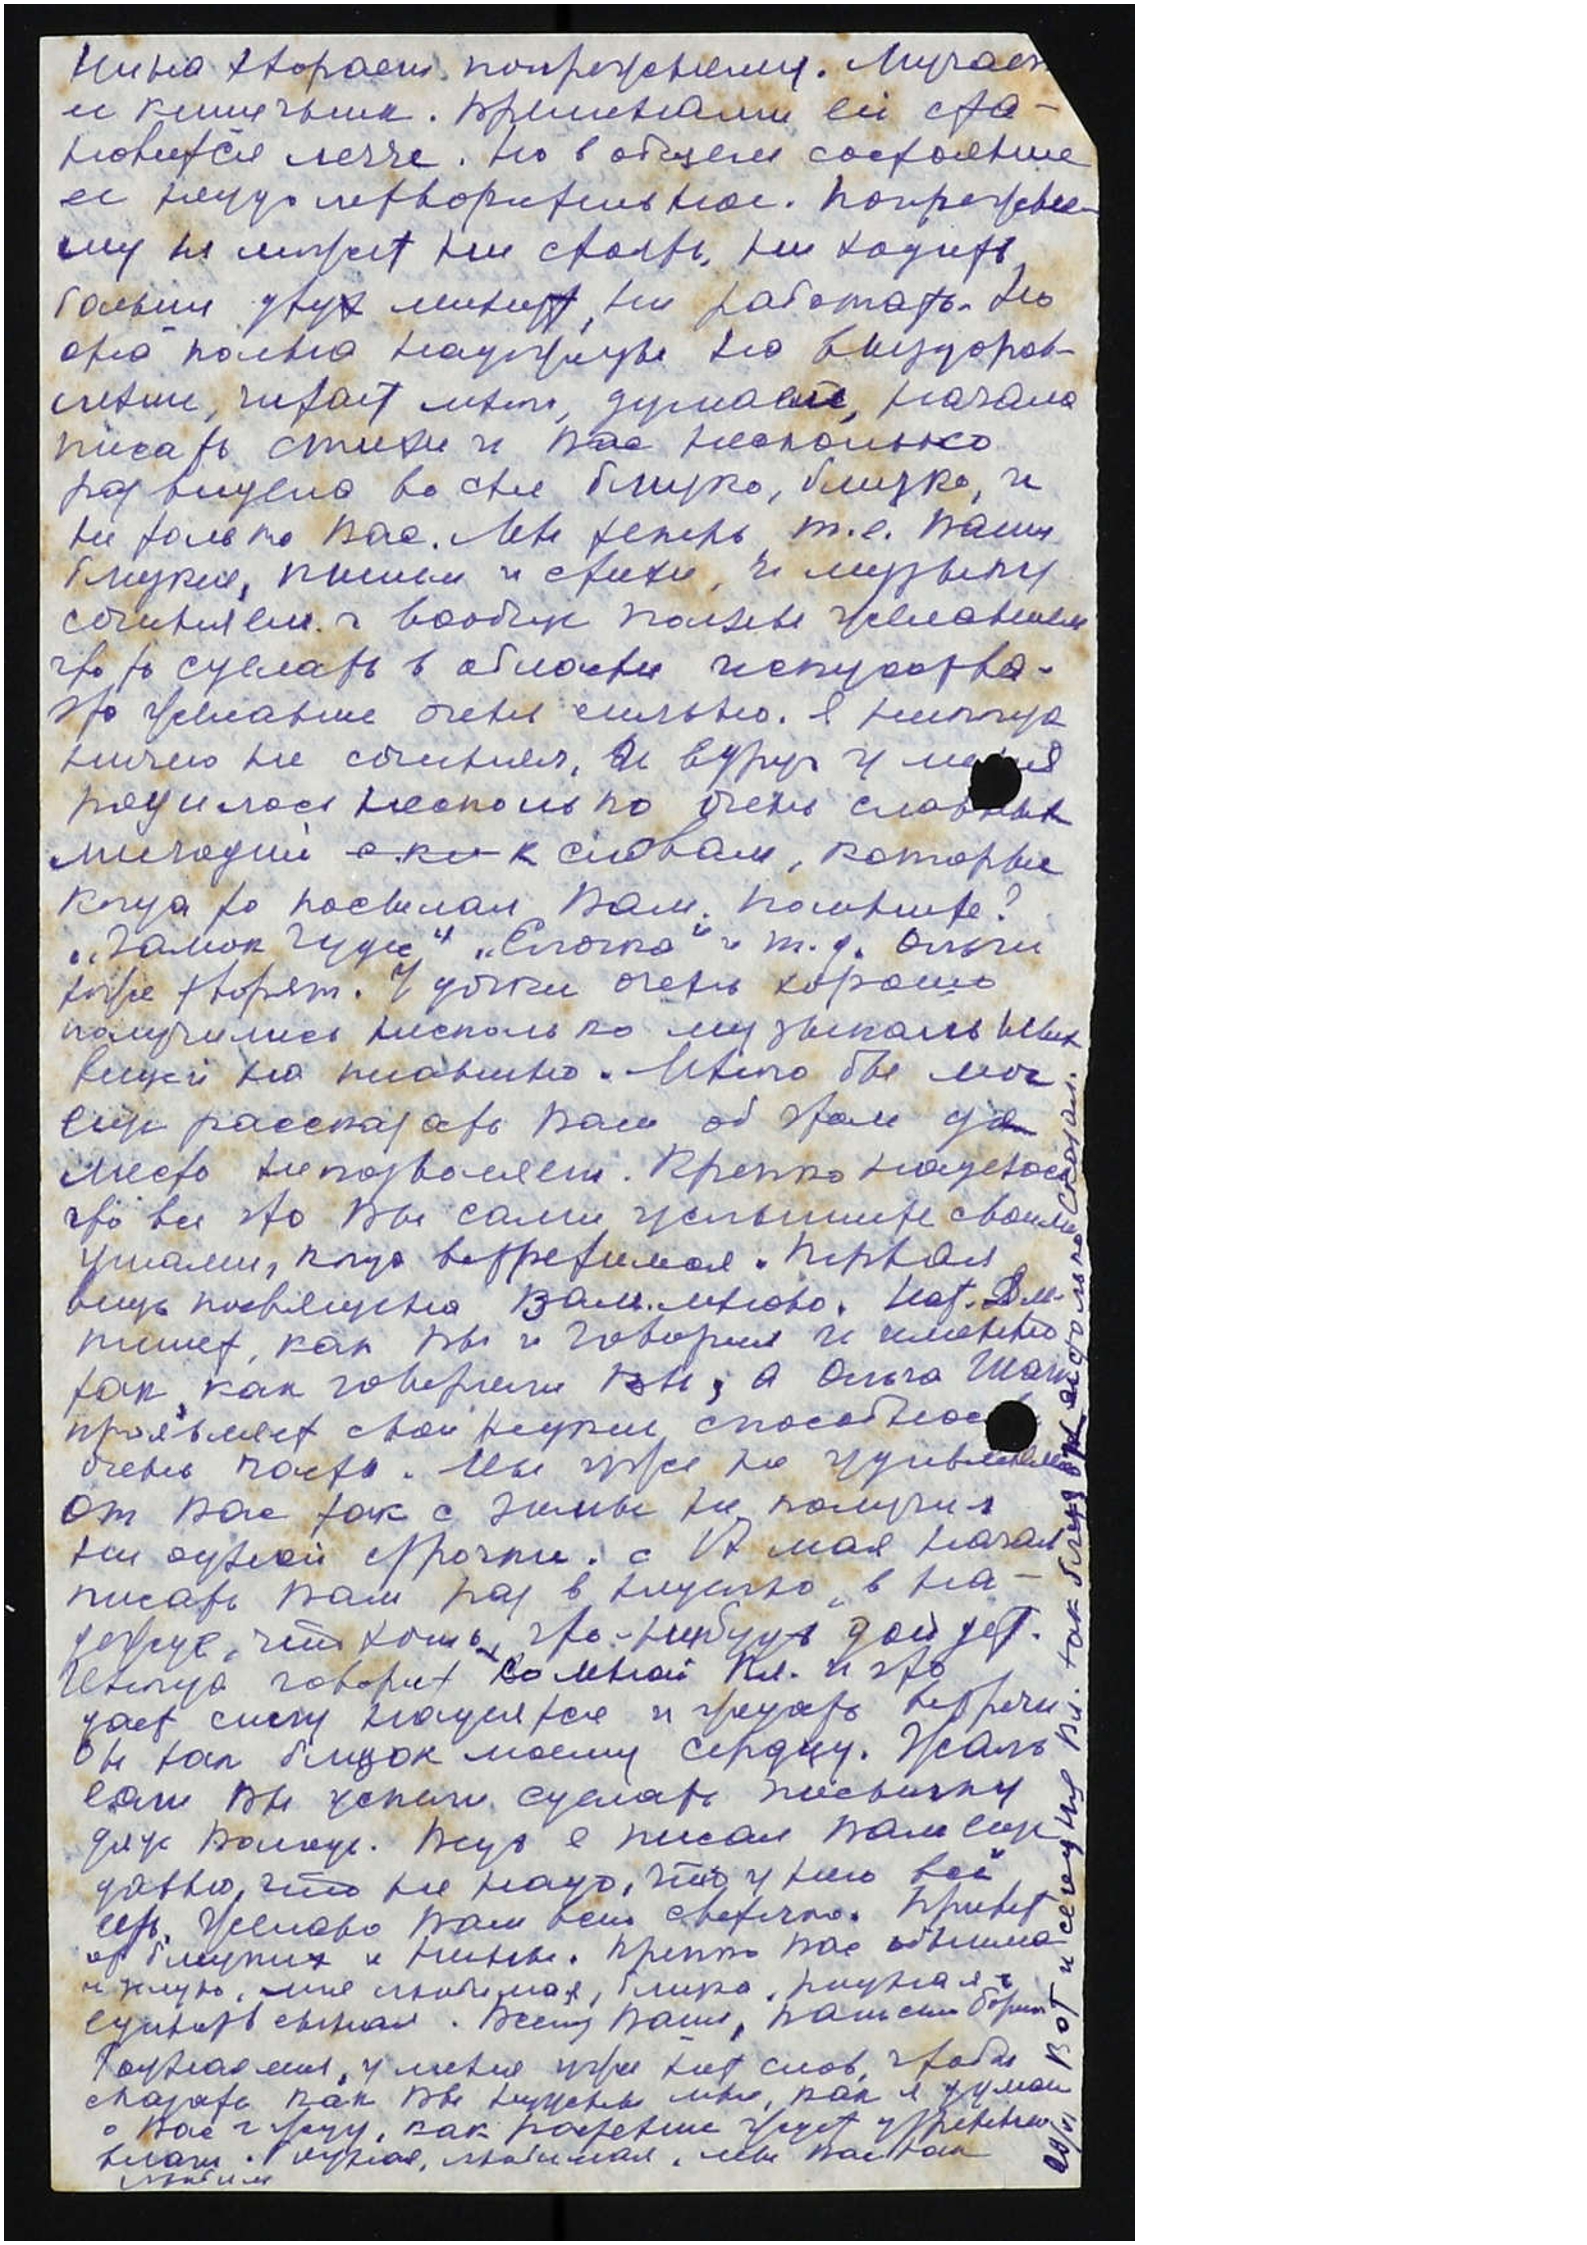 Нина хворает попрежнему. Мучает
ее кишечник. Временами ей ста-
новится легче. Но в общем состояние
ее неудолетворительное. Попрежне-
му не может ни стоять, ни ходить
больше двух минут, ни работать. Но
она полна надежды на выздоров-
ление, читает много, думает, начала
писать стихи и Вас несколько
раз видела во сне близко, близко, и
не только Вас. Мы теперь, т.е. Ваши
близкие, пишем и стихи, и музыку
сочиняем и вообще полны желанием
что то сделать в области искусства.
Это желание очень сильно. Я никогда
ничего не сочинял, и вдруг у меня
родилось несколько очень славных
мелодий к словам, которые
когда то посылал Вам. Помните?
„Замок Чудес" „Елочка" и т.д. Ольги
тоже творят. У дочки очень хорошо
получились несколько музыкальных
вещей на пианино. Много бы мог
еще рассказать Вам об этом да
место не позволяет. Крепко надеюсь
что все это Вы сами услышите своими
ушами, когда встретимся. Первая
вещь посвящена Вам. мною. Нат. Дм.
пишет, как Вы и говорили и именно
так, как говорили Вы, а Ольга
проявляет свои способности
очень часто. Мы уже не удивляемся
От Вас так с зимы не получил
ни одной строчки. с 17 мая начал
писать Вам раз в неделю, в на-
дежде, что хоть что-нибудь дойдет.
Иногда говорит со мной Вл. и это
дает силу надеяться и ждать встречи.
Он так близок моему сердцу. Жаль
если Вы успели сделать посылку
дяде Володе. Ведь я писал Вам еще
давно, что не надо, что у него всё
есть. Желаю Вам всего светлого. Привет
от близких и Нины. Крепко Вас обнимаю
и целую, моя любимая, близкая, родная и
единственная. Весь Ваш, Ваш сын Борис
Родная моя, у меня уже нет слов, чтобы
сказать как Вы нужны мне, как я думаю
о Вас и жду, как растение ждет
влаги. Родная, любимая, мы Вас так
любим
Вот и сегодня Вл. так близко
сказал.